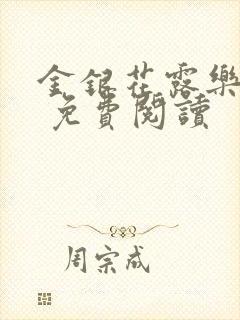 金銀花露樂
免費閱讀
周宗成